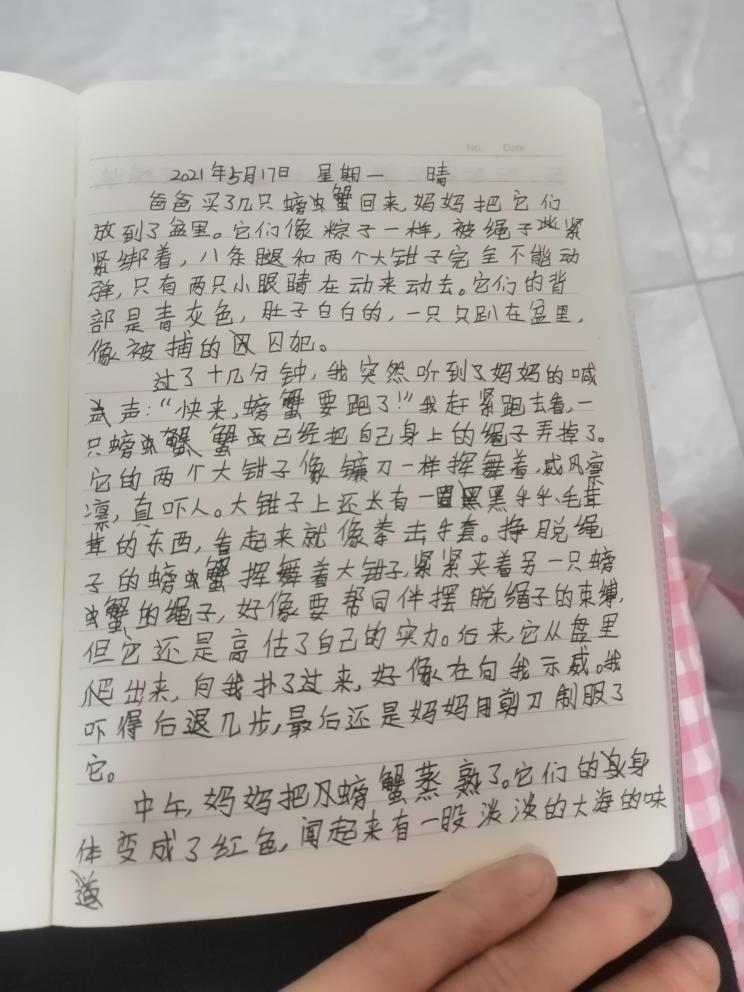 No. Date
2021年5月17日 星期一 晴
爸爸买了几只螃蟹回来,妈妈把它们
放到了盆里。它们像粽子一样,被绳子紧
紧绑着,八条腿和两个大钳子完全不能动
弹,只有两只小眼睛在动来动去。它们的背
部是青灰色,肚子白白的,一只只趴在盆里,
像被捕的囚犯。
过了十几分钟,我突然听到了妈妈的喊
声:“快来,螃蟹要跑了!”我赶紧跑去看,一
只螃蟹已经把自己身上的绳子弄掉了。
它的两个大钳子像镰刀一样挥舞着,威风凛
凛,真吓人。大钳子上还长有一黑黑乎乎、毛茸
茸的东西,看起来就像拳击手套。挣脱绳
子的螃蟹挥舞着大钳子,紧紧夹着另一只螃
蟹的绳子,好像要帮同伴摆脱绳子的束缚,
但它还是高估了自己的实力。后来,它从盘里
爬出来,向我扑了过来,好像在向我示威。我
吓得后退几步,最后还是妈妈用剪刀制服了
它。
中午,妈妈把螃蟹蒸熟了。它们的身
体变成了红色,闻起来有一股淡淡的大海的味